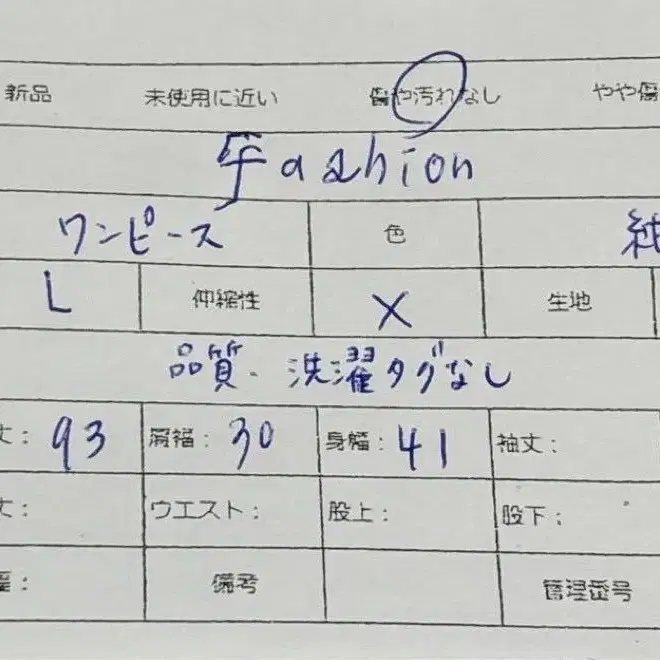 新品 未使用に近い 傷や汚れなし やや傷
Fashion
ワンピース 色
L 伸縮性 X 生地
品質・洗濯タグなし
丈: 93 肩幅: 30 身幅: 41 袖丈:
丈: ウエスト: 股上: 股下:
備考 管理番号